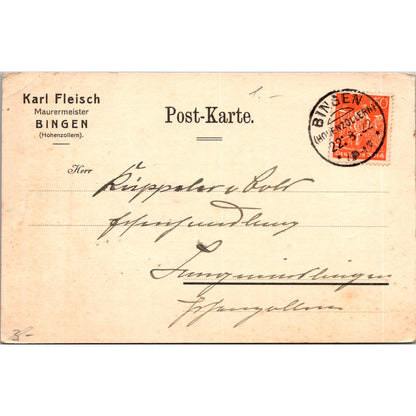 1.-
Karl Fleisch
Maurermeister
BINGEN
(Hohenzollern).
Post-Karte.
BINGEN
(HOHENZOLLERN)
22.
22
Herr
Küppeler & Bold
Eisenhandlung
Jungnau
Hohenzollern
3.-